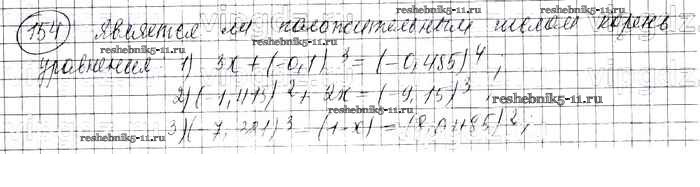 154 Является ли положительным числом корень
уравнения 1) 3x + (-0,1)³ = (-0,485)⁴,
2) (-1,415)² + 2x = (-9,15)³
3) (-7,381)³ - (1-x) = )²;
reshebnik5-11.ru
reshebnik5-11.ru
reshebnik5-11.ru
reshebnik5-11.ru
reshebnik5-11.ru